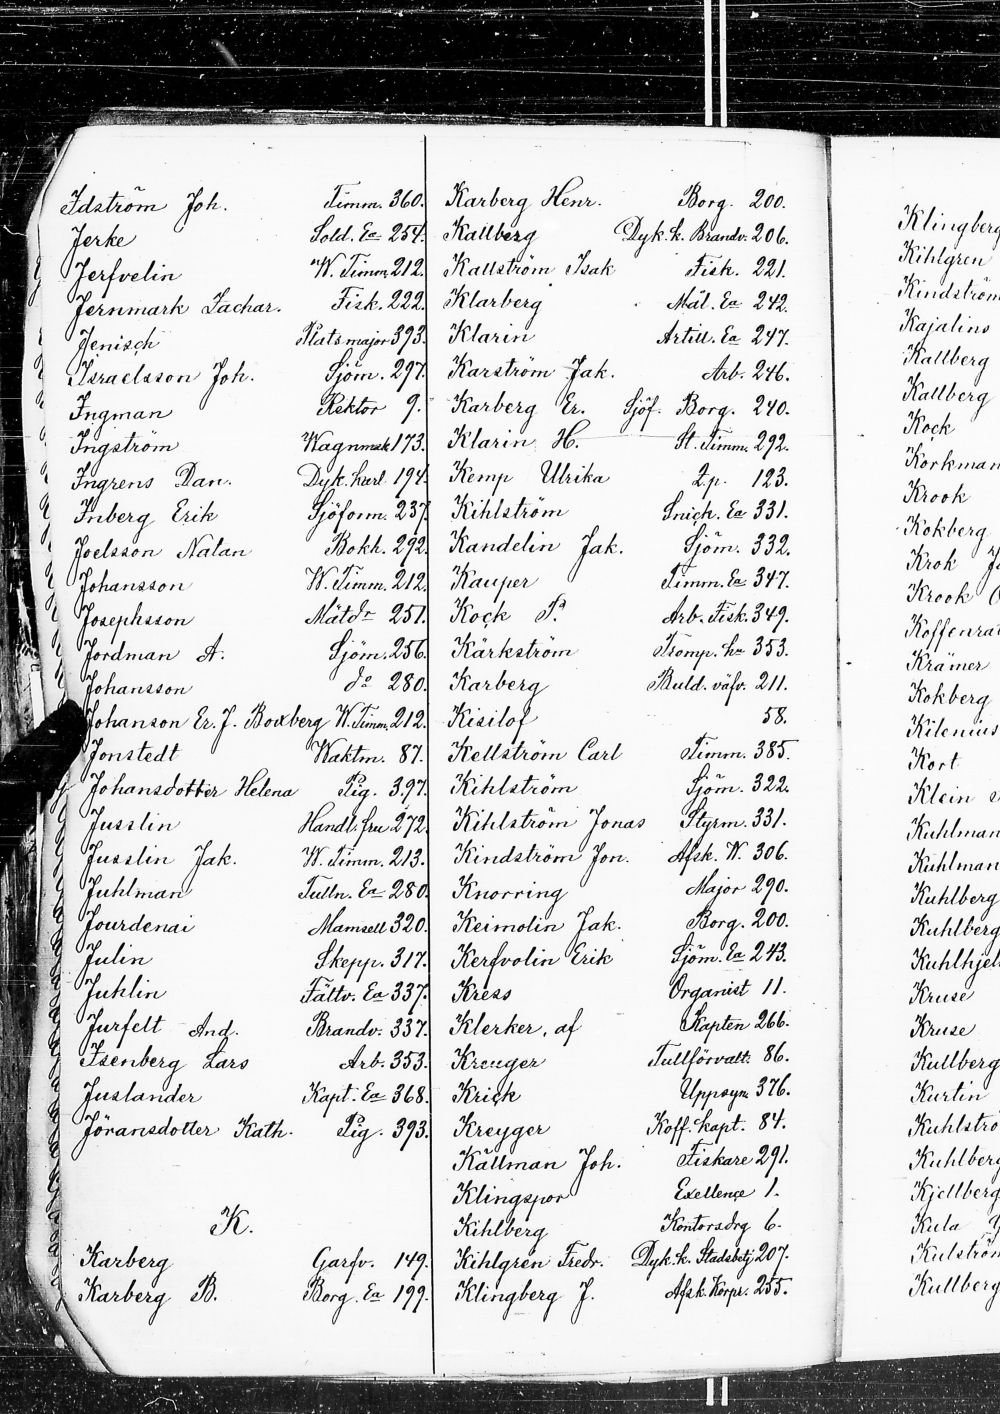 Idström Joh. Timm. 360.
Jerke Sold. Ea 254.
Jerfvelin W. Timm. 212.
Jernmark Zachar. Fisk. 222.
Jenisch Platsmajor 393.
Israelsson Joh. Sjöm. 297.
Ingman Rektor 9.
Ingström Wagnmak 173.
Ingrens Dan. Dyk. karl 194.
Inberg Erik Sjöform. 237.
Joelsson Natan Bokh. 292.
Johansson W. Timm. 212.
Josephsson Mätdr 251.
Jordman A. Sjöm. 256.
Johansson do 280.
Johanson Er. J. Boxberg W. Timm. 212.
Jonstedt Waktm. 87.
Johansdotter Helena Pig. 397.
Jusslin Handl. fru 272.
Jusslin Jak. W. Timm. 213.
Juhlman Tulln. Ea 280.
Jourdenai Mamsell 320.
Julin Skepp. 317.
Juhlin Fältv. Ea 337.
Jurfelt And. Brandv. 337.
Isenberg Lars Arb. 353.
Juslander Kapt. Ea 368.
Jöransdotter Kath. Pig. 393.
K.
Karberg Garfv. 149.
Karberg B. Borg. Ea 199.
Karberg Henr. Borg. 200.
Kallberg Dyk. k. Brandv. 206.
Kallström Isak Fisk. 221.
Klarberg Mål. Ea 242.
Klarin Artill. Ea 247.
Karström Jak. Arb. 246.
Karberg Er. Sjöf. Borg. 240.
Klarin H. St. Timm. 292.
Kemp Ulrika 123.
Kihlström Snick. Ea 331.
Kandelin Jak. Sjöm. 332.
Kauper Timm. Ea 347.
Kock P. Arb. Fisk. 349.
Kärkström Tromp. ha 353.
Karberg Buld. väfv. 211.
Kisilof 58.
Kellström Carl Timm. 385.
Kihlström Sjöm. 322.
Kihlström Jonas Styrm. 331.
Kindström Jon. Afsk. W. 306.
Knorring Major 290.
Keimolin Jak. Borg. 200.
Kerfvolin Erik Sjöm. Ea 243.
Kress Organist 11.
Klerker, af Kapten 266.
Kreuger Tullförvalt. 86.
Krick Uppsyn. 376.
Kreyger Koff. kapt. 84.
Källman Joh. Fiskare 291.
Klingspor Exellence 1.
Kihlberg Kontorsdrg 6.
Kihlgren Fredr. Dyk. k. Stadsbetj 207.
Klingberg J. Afsk. Korpr. 255.
Klingberg
Kihlgren
Kindström
Kajalins
Kallberg
Kallberg
Kock
Korkman
Krook
Kokberg
Krok
Krook
Krämer
Kokberg
Kilenius
Kort
Klein
Kuhlman
Kuhlman
Kuhlberg
Kuhlberg
Kuhlhjel
Kruse
Kruse
Kullberg
Kurtin
Kuhlströ
Kuhlberg
Kjellberg
Kula
Kulström
Kullberg